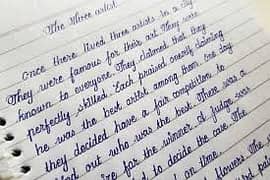 The three artist
Once there lived three artists in a city.
They were famous for their art. They were
known to everyone. They claimed that they
perfectly skilled. Each praised onerly claiming
he was the best artist among them. one day
they decided have a fair competition to
out who was the best. There was a
for the winner of judge was
to decide the case. The
on time.
flowers. The